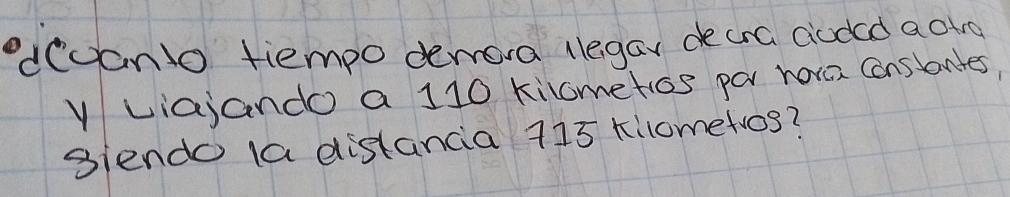 ¿Cuanto tiempo demora llegar de una ciudad a otra
y viajando a 110 kilometros por hora constantes,
siendo la distancia 715 kilometros?